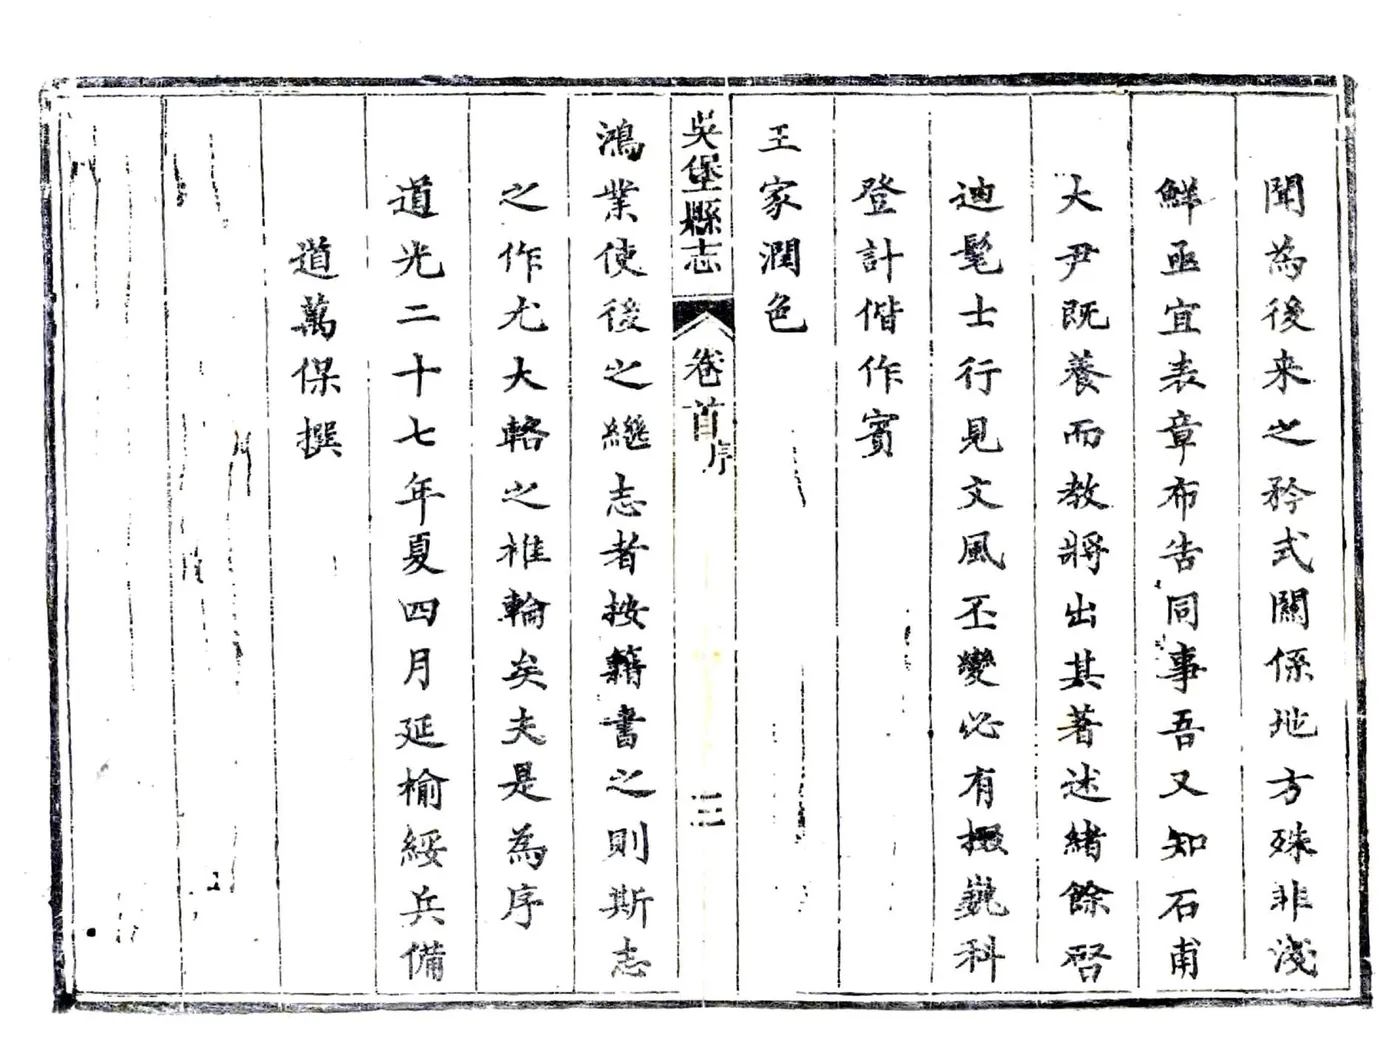 聞為後来之矜式關係地方殊非淺
鮮亟宜表章布告同事吾又知石甫
大尹既養而教將出其著述緒餘啓
迪髦士行見文風丕變必有掇巍科
登計偕作賓
王家潤色
吳堡縣志 卷首 序 三
鴻業使後之繼志者按籍書之則斯志
之作尤大輅之椎輪矣夫是為序
道光二十七年夏四月延榆綏兵備
道萬保撰